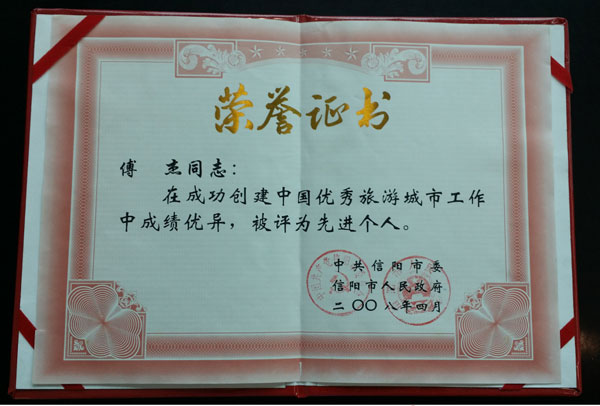 荣誉证书
傅 杰同志：
在成功创建中国优秀旅游城市工作
中成绩优异，被评为先进个人。
中共信阳市委
信阳市人民政府
二〇〇八年四月